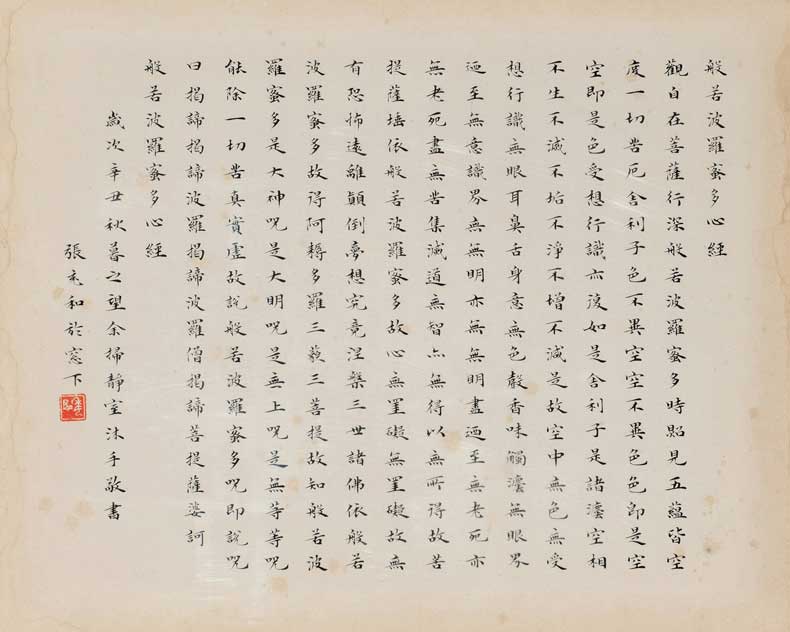 般若波羅蜜多心經
觀自在菩薩行深般若波羅蜜多時照見五蘊皆空
度一切苦厄舍利子色不異空空不異色色即是空
空即是色受想行識亦復如是舍利子是諸灋空相
不生不滅不垢不淨不增不減是故空中無色無受
想行識無眼耳鼻舌身意無色聲香味觸灋無眼界
迺至無意識界無無明亦無無明盡迺至無老死亦
無老死盡無苦集滅道無智亦無得以無所得故菩
提薩埵依般若波羅蜜多故心無罣礙無罣礙故無
有恐怖遠離顛倒夢想究竟涅槃三世諸佛依般若
波羅蜜多故得阿耨多羅三藐三菩提故知般若波
羅蜜多是大神咒是大明咒是無上咒是無等等咒
能除一切苦真實虛故說般若波羅蜜多咒即說咒
曰揭諦揭諦波羅揭諦波羅僧揭諦菩提薩婆訶
般若波羅蜜多心經
歲次辛丑秋暮之望余掃靜室沐手敬書
張充和於窗下